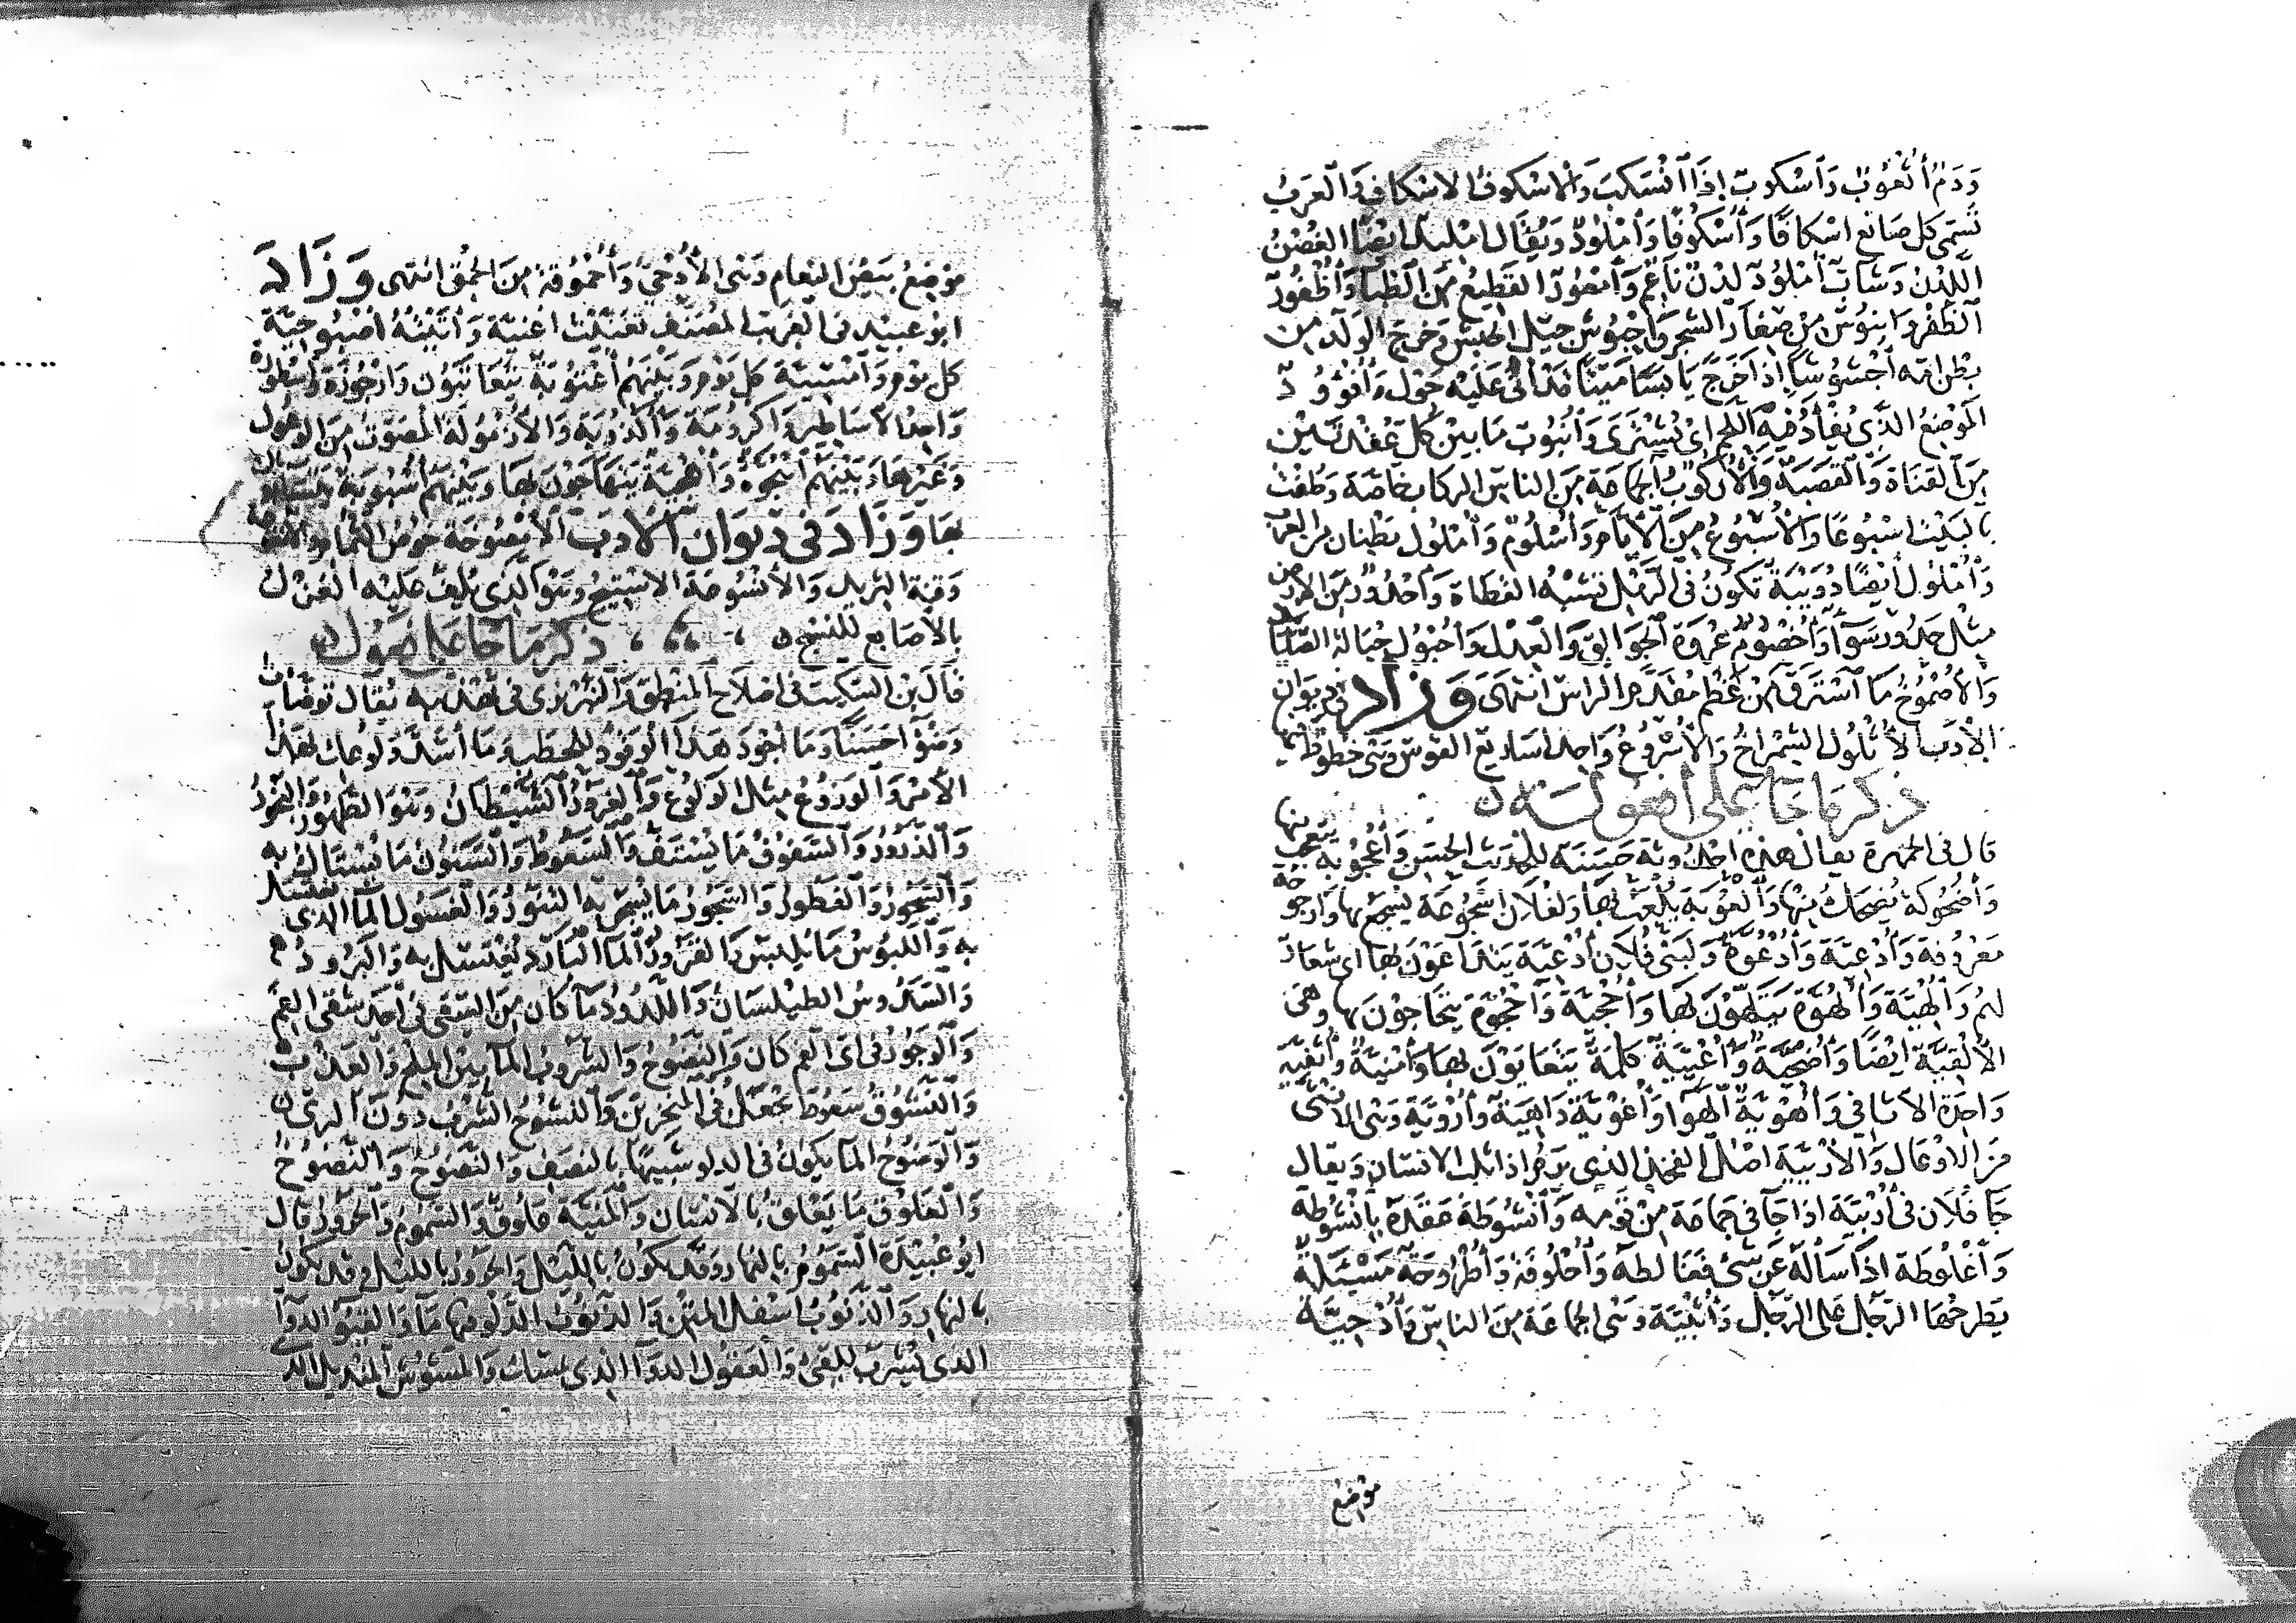 وَدَمٌ أُثْعُوبٌ وَأُسْكُوبٌ إِذَا انْسَكَبَ وَالْأُسْكُوفُ الاسْكَافُ وَالْعَرَبُ
تُسَمِّى كل صَانع اسْكافًا وَأُسْكُوفًا وَأُمْلُودٌ وَيُقَال امْليدٌ ايْضًا الغُصْنُ
اللَّدْنُ وَشَابٌّ أُمْلُودٌ لَدْنٌ نَاعِمٌ وَأُمْعُوزٌ القَطِيعُ مِنَ الظِّبَا وَأُظْفُورٌ
الظُّفْرُ وَابنُوسٌ مِنْ صِغَارِ الشجر وَأُحْبُوشٌ جِيل الحَبَش وَخَرجَ الوَلَدُ مِن
بَطْن امّه أُحْشُوشًا إِذَا خَرَجَ يَابسًا مَيّتًا قدْ أتى عَلَيْه حَوْل وَأُفْؤُودٌ
الْمَوْضِعُ الذَّى يُفْأدُ فيه اللحم اىْ يُشْتَوَى وَأُنْبُوبٌ مَا بَيْنَ كُلّ عُقْدَتَيْن
مِنَ القَنَاةِ وَالقَصَبَةِ وَالْأُرْكُوبُ الجمَاعَة مِنَ النَّاس الركاب خاصّة وَطُفْتُ
بالبَيْت اُسْبُوعًا وَالأُسْبُوعُ مِنَ الْأيّام وَأُسْلُومٌ وَأُمْلُول بَطْنان من العرب
وَأُمْلُول أيْضًا دُوَيْبَّةٌ تَكُونُ فى الرَّمْل تُشْبهُ العَظَاة وَأُحْدُورٌ مِنَ الارْض
مِثْل حَدُور سَوَآ وَأُخْصُومٌ عُرْوَة الجُوَالِق وَالْعِدْل وَأُحْبُول حبَالة الصَّائد
وَالأُصْمُوخُ مَا اسْتَرَقَّ مِنْ عَظْم مُقَدَّم الراس انْتَهَى وَزَاد فى ديوَان
الأدَب الأُثْلُول الشِّمْرَاخ وَالأُسْرُوعُ وَاحد اسَاريع القوس وَهْى خطوطٌ فيها
ذكر مَا جَا عَلى أُفعُولَة
قال فى الجمهرة يقال هَذِه أحْدُوثَة حَسَنَة للحدِيث الحَسَن وَأُعْجُوبَة يتعجب منها
وَأُضْحُوكَة يُضْحَكُ منْها وَأُلْعُوبَة يُلْعَبُ بهَا وَلفُلاَن أُسْجُوعَة يسْجَع بها وَارجوحَة
مَعْرُوفة وَأُدْعِيَّة وَأُدْعُوَّة وَلبَنى فُلَان أُدْعيَّة يَتدَاعَوْن بهَا اى شعَارٌ
لهُمْ وَأُلْهِيَّة وَأُلْهُوَّة يَتَلَهَّوْن بهَا وَأُحْجيَّة وَأُحْجُوَّة يتحَاجَوْن بها وهى
الأُلْقيَّة ايْضًا وَأُضْحيَّة وَأُعْيِيَّةٌ كَلمَةٌ يَتَعَايَوْن بهَا وَأُمْنيَّةٌ وَأُثْفِيّة
وَاحِدَة الاثافى وَأُهْويّةٌ الهوَا وَأُغْوِيّةٌ دَاهِيَة وَأُرْويَّةٌ وَهْى الانثى
مِنَ الاوْعَال وَالأُرْبيَّة اصْلُ الفخذ الذى يَرِمُ اذا ثلب الانسَان وَيقال
جَا فُلَان فى أُرْبيَّة اذا جَآ فى جَمَاعَة مِنْ قَوْمه وَأُنْشُوطَة عَقَدَهُ بأُنْشُوطَة
وَأُغْلُوطَة اذا سَالَهُ عَنْ شَئ فغَالطهُ وَأُحْلُوفة وَأُطْرُوحَةٌ مَسْئَلَةٌ
يَطْرحُهَا الرَّجُل عَلى الرَّجُل وَأُثْبِيّة وَهْى الجَماعَة مِنَ النَّاس وَأُدْحِيَّة
موضع
مَوْضعُ بَيْض النعَام وَهْى الأُدْحِيُّ وَأُحْمُوقَة مِنَ الحُمْق انتهى وَزَادَ
ابُو عبيْد فى الغريب المُصَنَّف تغَنَّيْت أُغْنيَّةً وَأتَيْتُهُ أُصْبُوحيَّةً
كل يَوْم وَأُمْسيَّة كل يَوْم وَبَيْنَهُمْ أُعْتُوبَةٌ يَتَعَاتَبُون وَارْجُوزَة وَأسْطُورَة
وَاحِدُ الأسَاطير وَأكْرُومَة وَأُكْذُوبَة وَالأُزْمُولَةُ المُصَوّت مِنَ الوعُول
وَغَيْرِهَا وَبَيْنَهُمْ أُهْجُوَّةٌ وَأُهْجيَّةٌ يَتَهَاجَوْن بهَا وَبَيْنَهُمْ أُسْبُوبَة يتسَابون
بهَا وَزَادَ فى ديوَان الأدَب
وَقبّة الثريد وَالأُنْشُوعَة الاسْتيج وَهْوَ الذى يُلَفّ عَليْه الغَزْل
بالأصَابع للنسْج ذكر مَا جَا عَلى فَعُول
قَالَ بْن السكّيت فى اصْلاَح المنْطق وَالتبْريزى فى تهْذيبه يُقَال توضّأتُ
وَضُوْءًا حَسَنًا وَمَا اجْوَدَ هَذَا الوَقُودَ للحَطب وَمَا أشَدَّ وَلُوعَك بهَذا
الأمْر وَالوَزُوعُ مِثْل الوَلُوع وَالغَرُورُ الشَّيْطَانُ وَهْوَ الطَّهُورُ وَالبَخُورُ
وَالذَّرُورُ وَالسَّفُوفُ مَا يُسْتَفُّ وَالسَّعُوطُ وَالسَّنُونُ مَا يُسْتَاكُ به
وَالسَّحُورُ وَالفَطُورُ وَالسَّجُورُ مَا يُسْجَرُ به التَّنُّورُ وَالغَسُول المَآ الذى يغتسل
به وَاللَّبُوسُ مَا يُلْبَسُ وَالقَرُورُ المَآ البَارد يُغْتَسَل به وَالبَرُود
وَالسَّدُوسُ الطيْلسَان وَاللَّدُودُ مَا كَانَ مِنَ السَّقى فى أحَد شقَّى الفَم
وَالوَجُورُ فى أىّ الفَم كَان وَالنَّضُوحُ وَالشَّرُوبُ المَآ بَيْنَ الملْح وَالعَذْب
وَالنَّشُوقُ سَعُوطٌ يُجْعَلُ فى المنْخرَيْن وَالنَّشُوحُ الشُّرْبُ دُونَ الرِّىّ
وَالوَضُوخُ المَآ يكونُ فى الدلو شَبيهًا بالنصْف وَالنَّصُوحُ وَالنَّضُوحُ
وَالعَلُوق مَا يَعْلَقُ بالانْسَان وَالمَنيَّة عَلُوقٌ وَالسَّمُومُ وَالحَرُورُ قال
ابُو عُبَيْدَة السَّمُومُ بالنهَار وَقَدْ تكونُ بالليْل وَالحَرُورُ بالليْل وَقَدْ تكون
بالنهَار وَالذَّنُوبُ اسْفَل المَتْن وَالذَّنُوبُ الدَّلْو فيهَا مَآ وَالقَيُو الدوَآ
الذى يُشْرَبُ للقئ وَالعَقُول الدوَآ الذى يمسك وَالمَشُوشُ المنْديل الذ